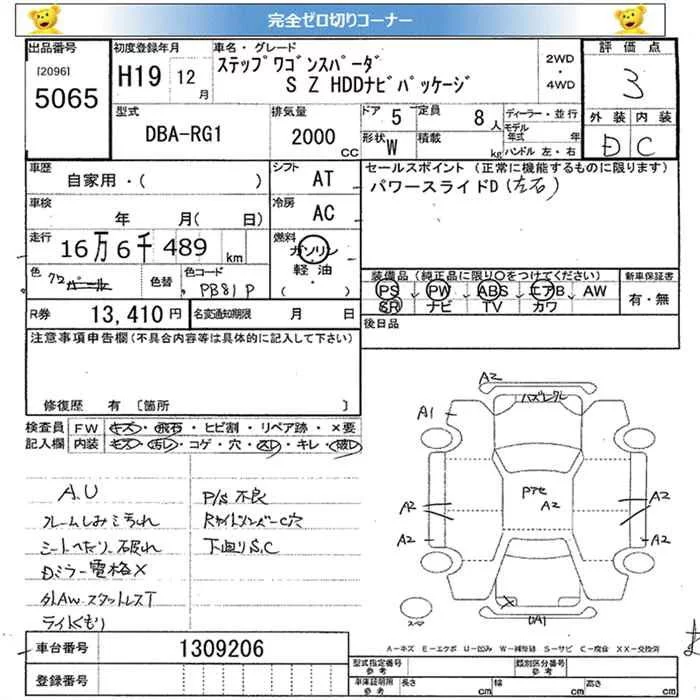 完全ゼロ切りコーナー
出品番号
[2096]
5065
初度登録年月
H19 12月
車名・グレード
ステップワゴンスパーダ
S Z HDDナビパッケージ
2WD
・
4WD
評価点
3
外装 内装
D C
型式
DBA-RG1
排気量
2000 CC
ドア 5
定員 8人
形状 W
積載 kg
ディーラー・並行
モデル年式 年
ハンドル 左・右
車歴
自家用・( )
シフト
AT
車検
年 月( 日)
冷房
AC
走行
16万6千489km
燃料
ガソリン
軽油
( ・ )
色
クロパール
色替
色コード
PB81P
R券
13,410円
名変通知期限
月 日
セールスポイント (正常に機能するものに限ります)
パワースライドD(左右)
装備品 (純正品に限り○をつけてください)
PS PW ABS エアB AW
SR ナビ TV カワ
新車保証書
有・無
後日品
注意事項申告欄(不具合内容等は具体的に記入して下さい)
修復歴 有 〔箇所 〕
検査員記入欄
FW キズ・飛石・ヒビ割・リペア跡・×要
内装 キズ・汚レ・コゲ・穴・スレ・キレ・破レ
A.U
フレームしみ汚れ
シートへたり、破れ
Dミラー電格X
外AWスタットレスT
ライトくもり
P/S不良
下廻りS.C
A2
A1
A2
A2
A2
A2
A2
A2
X
車台番号
1309206
登録番号
A-キズ E-エクボ U-凹み W-補修跡 S-サビ C-腐食 XX-交換済
型式指定番号
参考
類別区分番号
参考
車庫証明用
参考
長さ cm
幅 cm
高さ cm